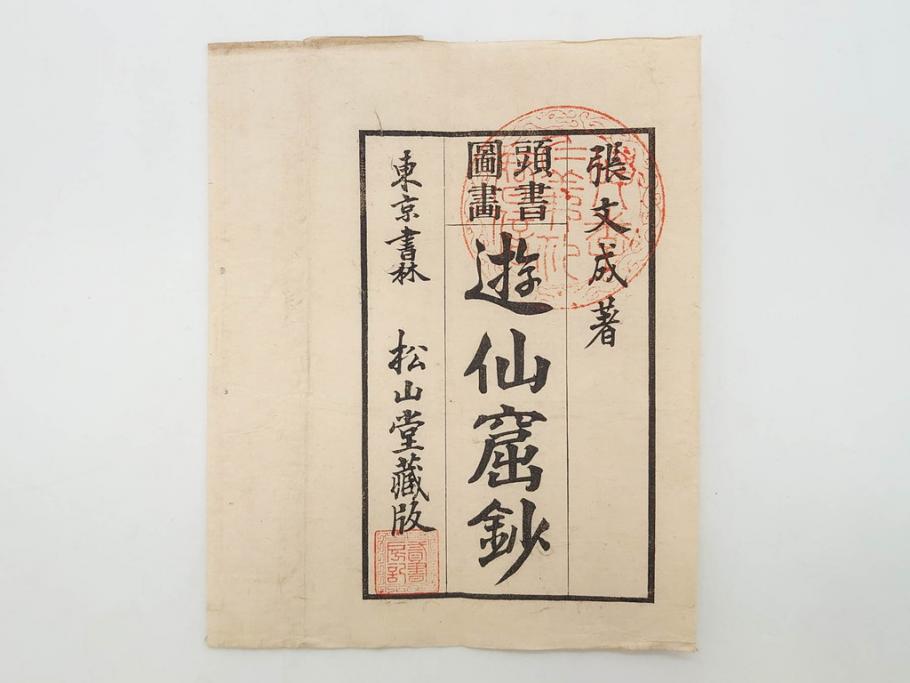 張文成著
頭書
圖畫
遊仙窟鈔
東京書林 松山堂藏版